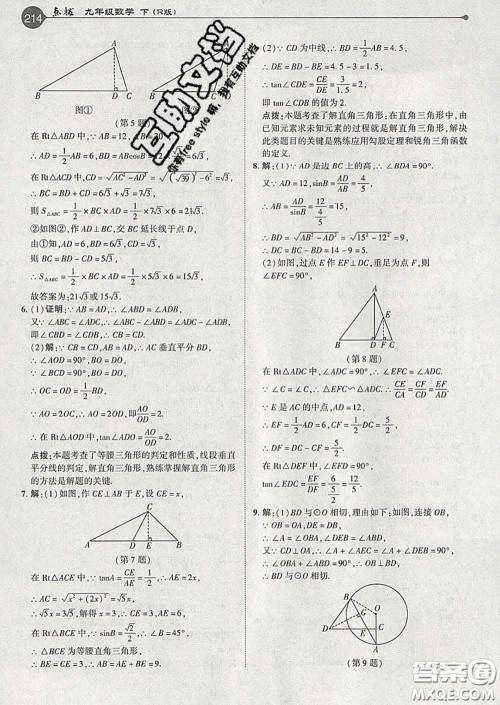 214 点拨 九年级数学 下(R版)
A
B
D
C
图①
(第5题)
在Rt△ABD中,∵AB=12,
∴AD=1/2AB=6,BD=ABcosB=
在Rt△ACD中,CD=√(AC²-AD²)=√((√39)²-6²)=√3,
∴BC=BD+CD=6√3+√3=7√3,
则S△ABC=1/2×BC×AD=1/2×7√3×6=21√3.
②如图②,作AD⊥BC,交BC延长线于点D,
由①知,AD=6,BD=6√3,CD=√3,
则BC=BD-CD=5√3,
∴S△ABC=1/2×BC×AD=1/2×5√3×6=15√3,
故答案为:21√3或15√3.
6.(1)证明:∵AB=AD,∴∠ABD=∠ADB,
又∵∠ABC=∠ADC,∴∠ABC-∠ABD=∠ADC-
∠ADB,∴∠CBD=∠CDB,∴CB=CD.
(2)解:∵CB=CD,AB=AD,∴AC垂直平分BD.
∴∠AOD=90°,BO=DO,
∵∠BCD=90°,BO=DO,
∴OC=OD=1/2BD,
∵AO=2OC,∴AO=2OD,∴AO/OD=2,
在Rt△AOD中,tan∠ADB=AO/OD=2.
点拨:本题考查了等腰三角形的判定和性质,线段垂
直平分线的判定,解直角三角形,熟练掌握解直角三角形
的方法是解题的关键.
7.解:(1)如图,作CE⊥AB于E,设CE=x,
C
A
D
E
B
(第7题)
在Rt△ACE中,∵tanA=CE/AE=1/2,∴AE=2x,
∴AC=√(x²+(2x)²)=√5x,
∴√5x=3√5,解得x=3,∴CE=3,AE=6,
在Rt△BCE中,∵sinB=√2/2,∴∠B=45°,
∴△BCE为等腰直角三角形,
∴BE=CE=3,∴AB=AE+BE=9.
(2)∵CD为中线,∴DE=1/2AB=4.5,
∴DE=AE-AD=6-4.5=1.5,
∴tan∠CDE=CE/DE=3/1.5=2,
即tan∠CDB的值为2.
点拨:本题考查了解直角三角形:在直角三角形中,由
已知元素求未知元素的过程就是解直角三角形,解决
此类题目的关键是熟练应用勾股定理和锐角三角函数
的定义.
8.解:(1)∵AD是边BC上的高,∴∠BDA=90°.
又∵AD=12,∴sinB=AD/AB=4/5,
∴AB=AD/sinB=12/(4/5)=15,
∴BD=√(AB²-AD²)=√(15²-12²)=9,
∴DC=BC-BD=14-9=5.
(2)如图,过点E作EF⊥DC,垂足为点F,则
∠EFC=90°.
A
E
B
D
F
C
(第8题)
在Rt△ADC中,∠ADC=90°,∴∠EFC=∠ADC=90°.
∵∠C=∠C,∴△EFC∽△ADC,∴CE/CA=CF/CD=EF/AD.
∵E是AC的中点,AD=12,
∴CE=1/2AC,∴EF=1/2AD=6,CF=DF=5/2.
在Rt△EDF中,∠EFD=90°,
tan∠EDC=EF/DF=6/(5/2)=12/5.
9.解:(1)BD与⊙O相切,理由如下:如图,连接OB,
∵OB=OA,DE=DB,
∴∠A=∠OBA,∠DEB=∠ABD,
又∵CD⊥OA,∴∠A+∠AEC=∠A+∠DEB=90°,
∴∠OBA+∠ABD=90°,∴∠OBD=90°,
∴BD与⊙O相切.
(第9题)
互助文档
你有free style 啊,我有互助文档
答案圈
MXQE.COM